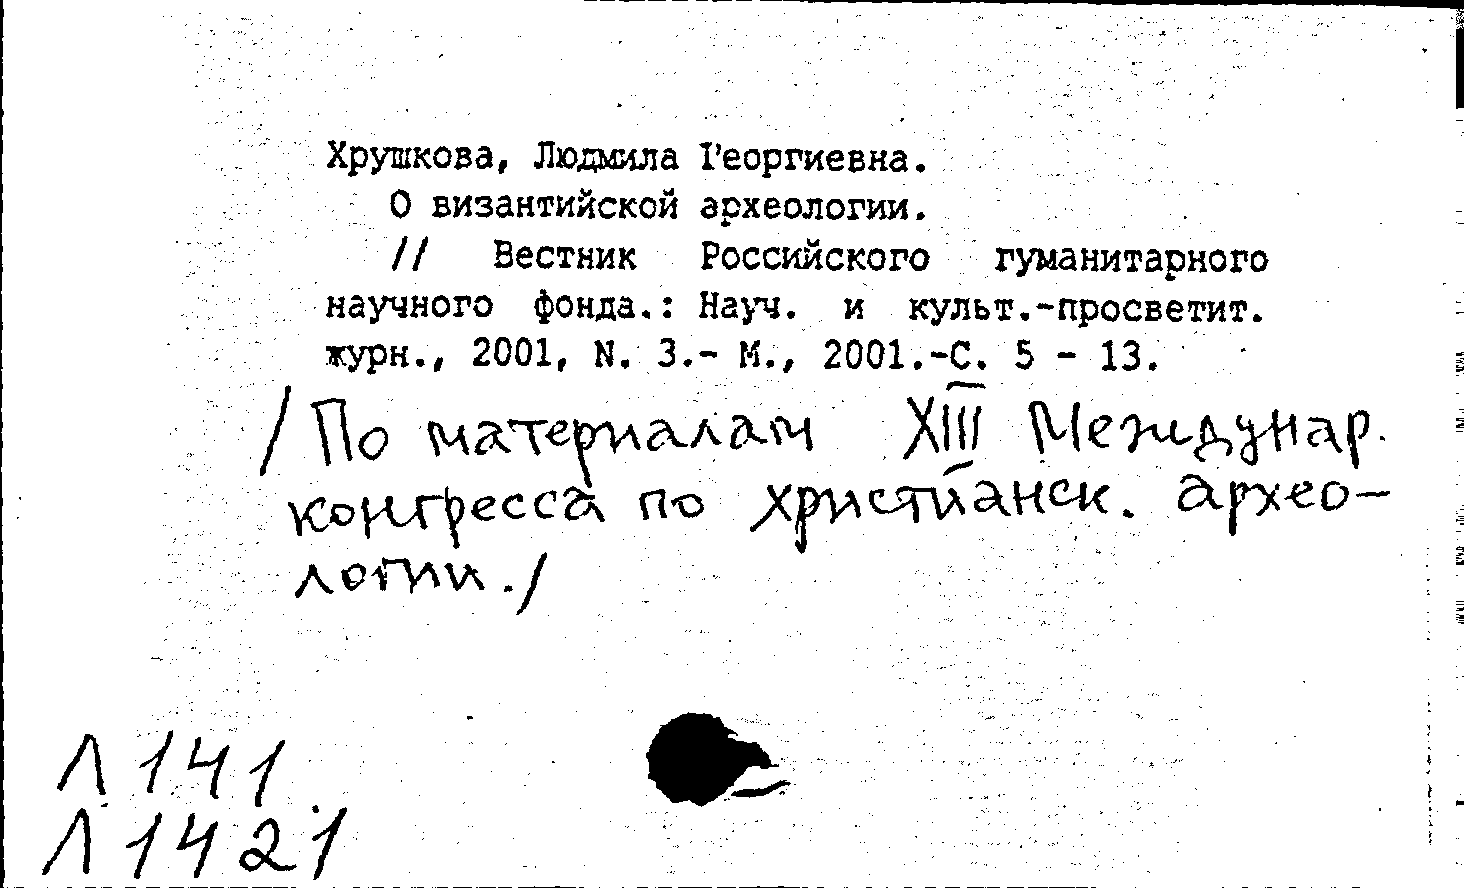 Хрушкова, Людмила Георгиевна.
О византийской археологии.
// Вестник Российского гуманитарного
научного фонда.: Науч. и культ.-просветит.
журн., 2001, N. 3.- М., 2001.-С. 5 - 13.
/По материалам XIII Междунар.
конгресса по христианск. архео-
логии./
Л 141
Л 1421